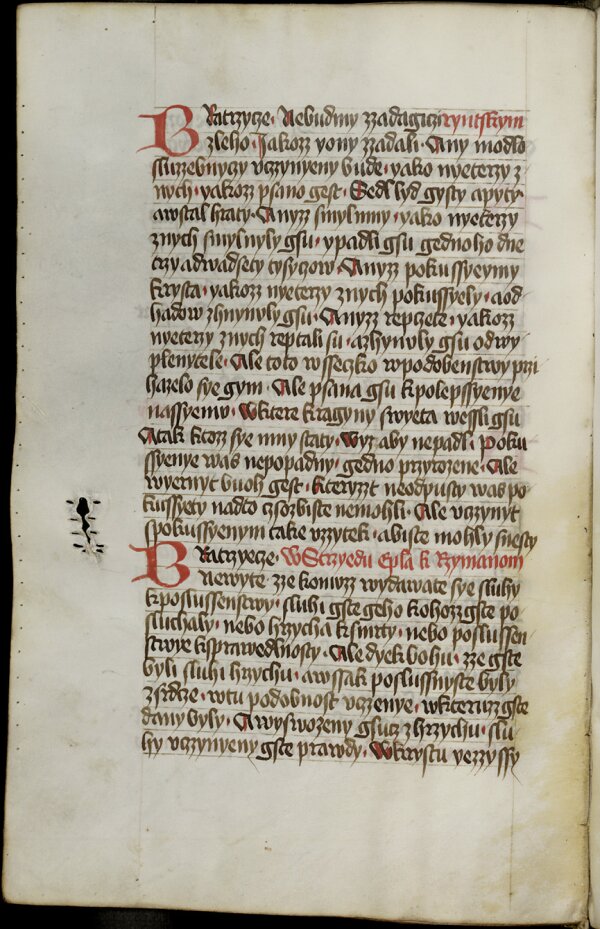 BRatrzycze · Nebudmy zzadagiczi ryntskym
zleho · Jakozz yony zzadali · Any modlo
sluzzebnyczy vczynyeny bude · yako nyeterzy z
nych · yakozz psano gest · Sedl lyd gysty apyty
awstal hraty · Anyzz smylnmy · yako nyeterzy
znych smylnyly gsu · ypadli gsu gednoho dne
trzy adwadsety tysyczow · Anyzz pokussyeymy
krysta · yakozz nyeterzy znych pokussyely · aod
hadow zhynyly gsu · Anyzz repczete · yakozz
nyeterzy znych reptali su · azhynyly gsu odwy
plenytele · Ale toto wsseczko wpodobenstwy przi
hazelo sye gym · Ale psana gsu kpolepssyenye
nassyemv · Wktere kragyny swyeta wessli gsu
Atak ktozz sye mny staty · Wyz aby nepadl · Poku
ssyenye was nepopadny · gedno przyrozene · Ale
wyernyt buoh gest · kteryzt neodpusty was po
kussyety nadto czsozbiste nemohli · Ale vczynyt
spokussyenym take vzzytek · abiste mohly snesty
BRatrzyecze · W Strzyedu Epla k Rzymanom
Newyte · zze komuzz wydawate sye sluhy
kposlussenstwy · sluhi gste geho kohozz gste po
sluchaly · nebo hrzycha ksmrty · nebo poslussen
stwye ksprawedlnosty · Ale dyek bohu · zze gste
byli sluhi hrzychu · awssak poslussnyste byly
zsrdze · wtu podobnost vczenye · wkteruz gste
dany byly · A wyswozeny gsucz zhrzychu · slu
hy vczynyeny gste prawdy · Wkrystu yezzyssy